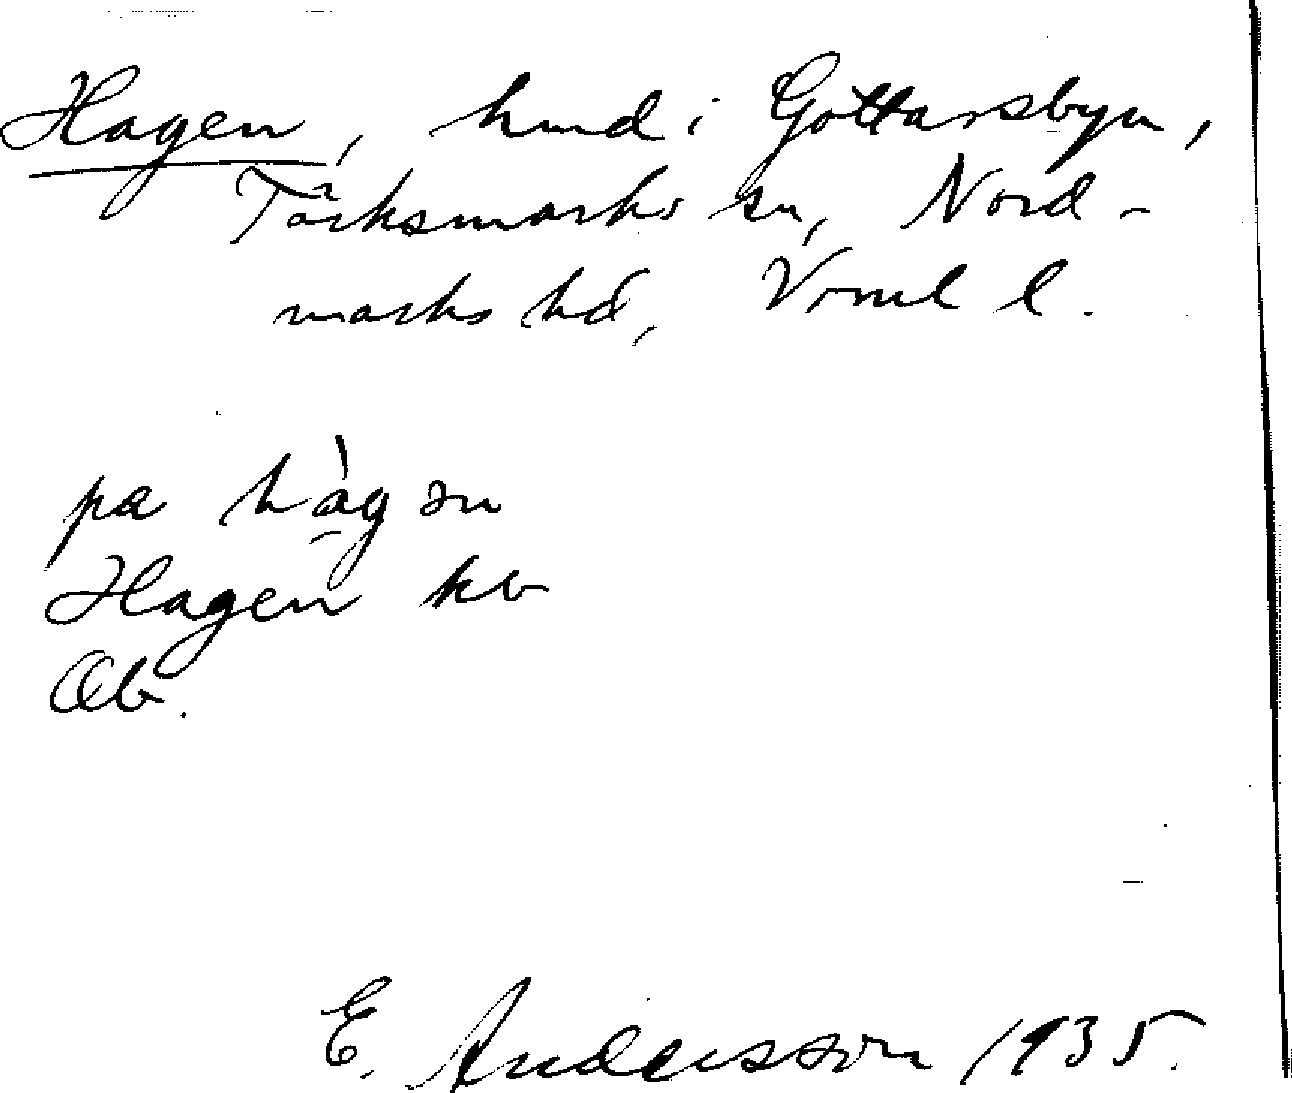 Hagen, hmd i Gottarsbyn,
Töcksmarks sn, Nord-
marks hd, Vrml l.
pa hàg ən
Hagen kb
Ob.
E. Andersson 1935.